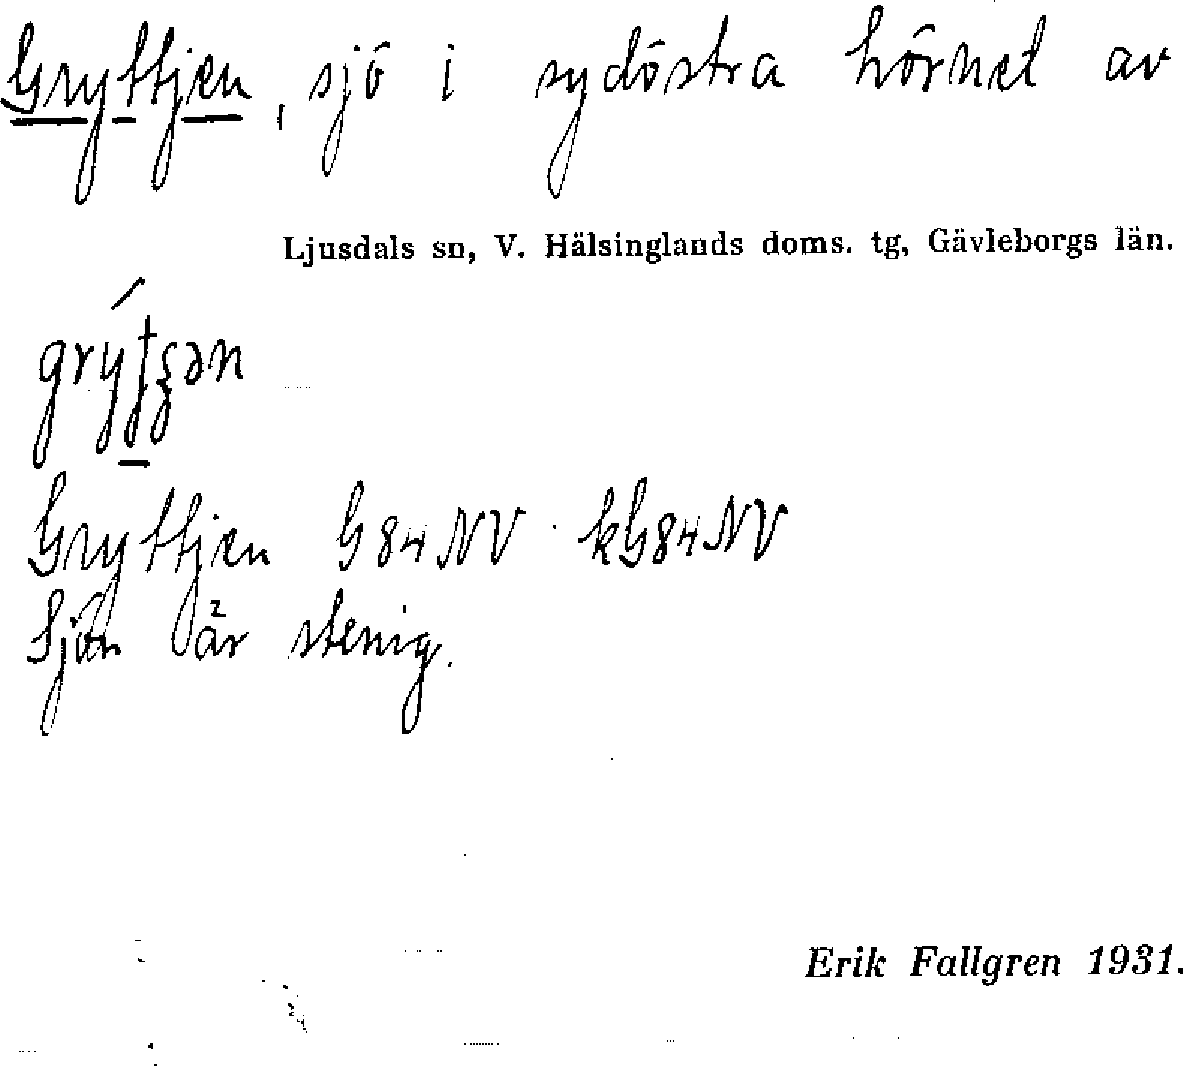 Gryttjen, sjö i sydöstra hörnet av
Ljusdals sn, V. Hälsinglands doms. tg, Gävleborgs län.
Gryttjen G84NV kG84NV
Sjön är stenig.
Erik Fallgren 1931.